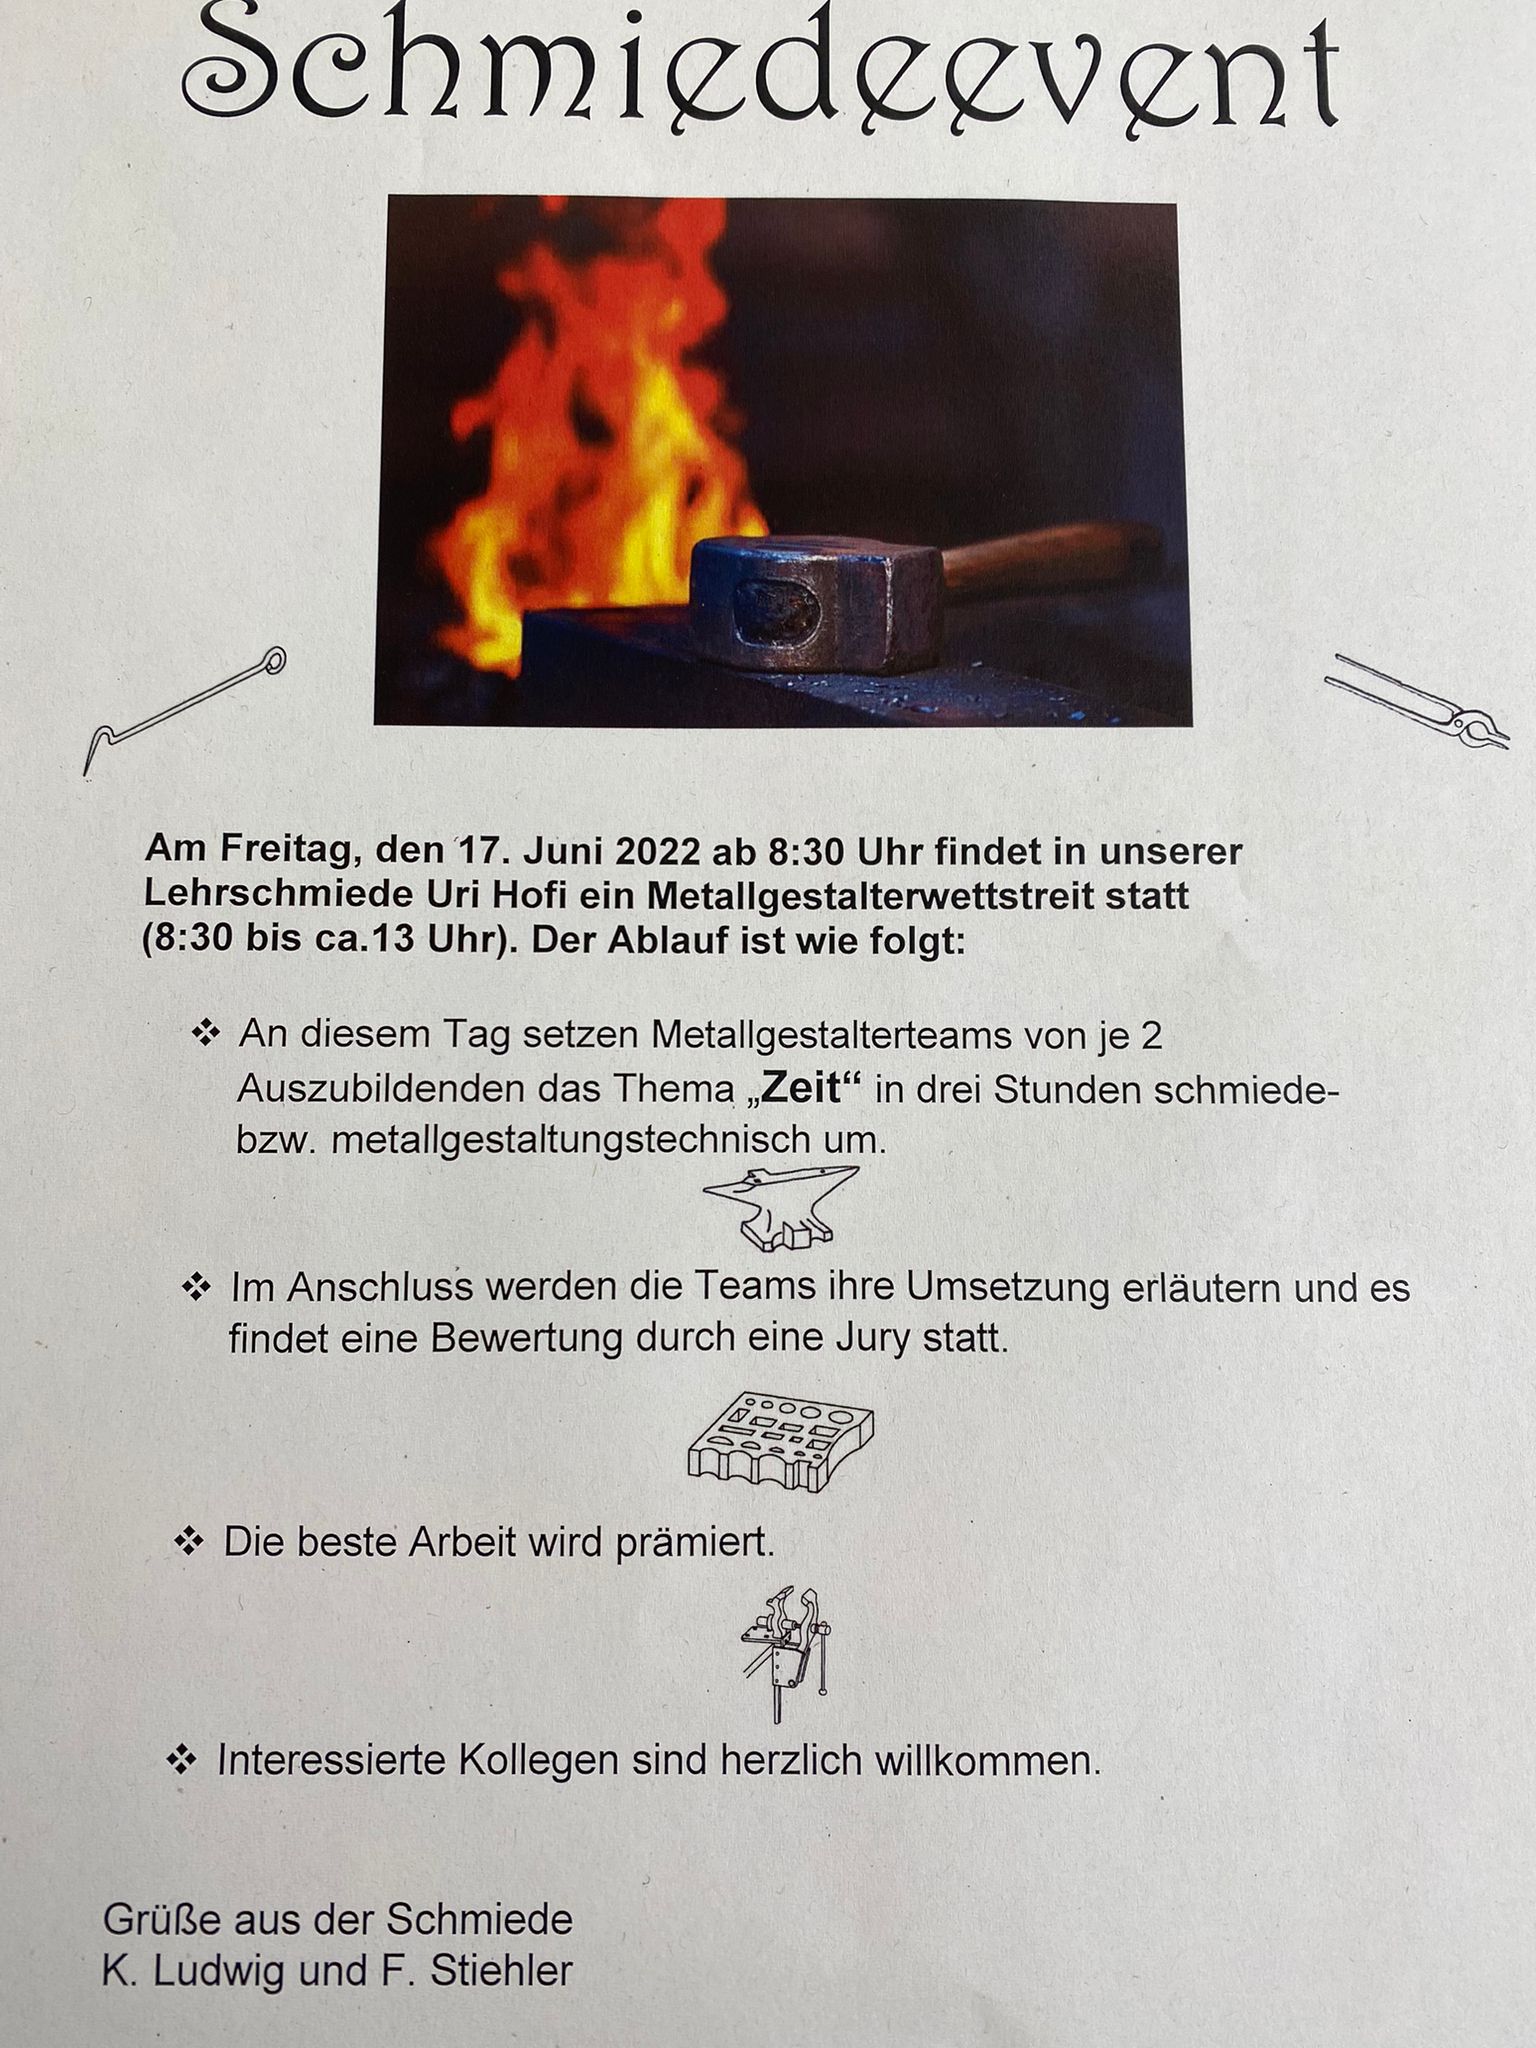 Schmiedeevent
Am Freitag, den 17. Juni 2022 ab 8:30 Uhr findet in unserer
Lehrschmiede Uri Hofi ein Metallgestalterwettstreit statt
(8:30 bis ca.13 Uhr). Der Ablauf ist wie folgt:
❖ An diesem Tag setzen Metallgestalterteams von je 2
Auszubildenden das Thema „Zeit“ in drei Stunden schmiede-
bzw. metallgestaltungstechnisch um.
❖ Im Anschluss werden die Teams ihre Umsetzung erläutern und es
findet eine Bewertung durch eine Jury statt.
❖ Die beste Arbeit wird prämiert.
❖ Interessierte Kollegen sind herzlich willkommen.
Grüße aus der Schmiede
K. Ludwig und F. Stiehler